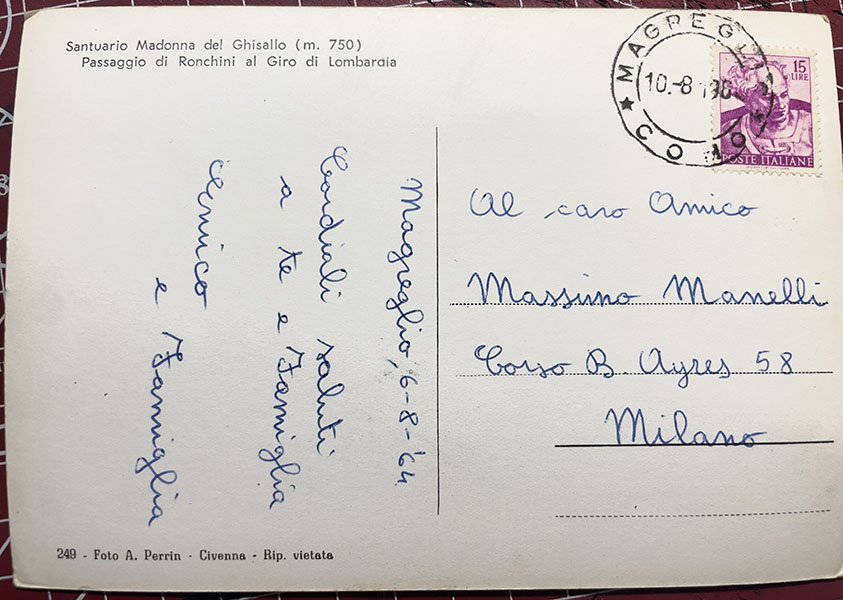 Santuario Madonna del Ghisallo (m. 750)
Passaggio di Ronchini al Giro di Lombardia
MAGREGLIO
10.-8 196
★ COMO
15
LIRE
POSTE ITALIANE
Magreglio, 6-8-'64
Cordiali saluti
a te e Famiglia
e Famiglia
Al caro Amico
Massimo Manelli
Corso B. Ayres 58
Milano
249 - Foto A. Perrin - Civenna - Rip. vietata